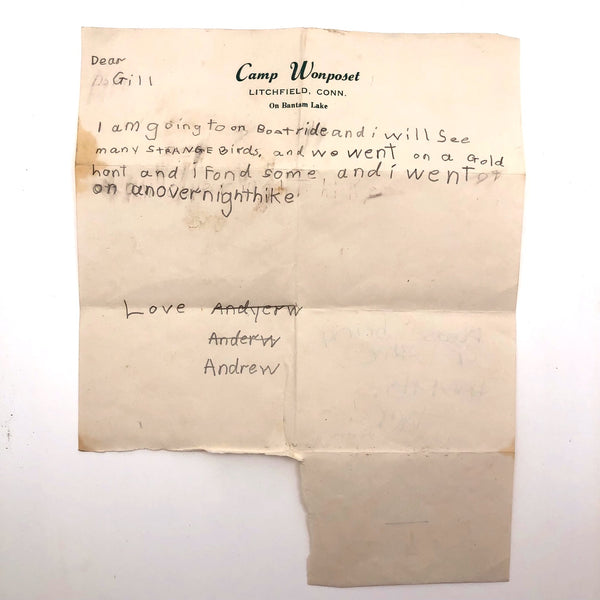 Dear
Gill
Camp Wonposet
LITCHFIELD, CONN.
On Bantam Lake
I am going to on Boat ride and i will See
many STRANGE Birds, and we went on a Gold
hont and i fond some, and i went
on anovernighthike
Love Andyerw
Anderw
Andrew